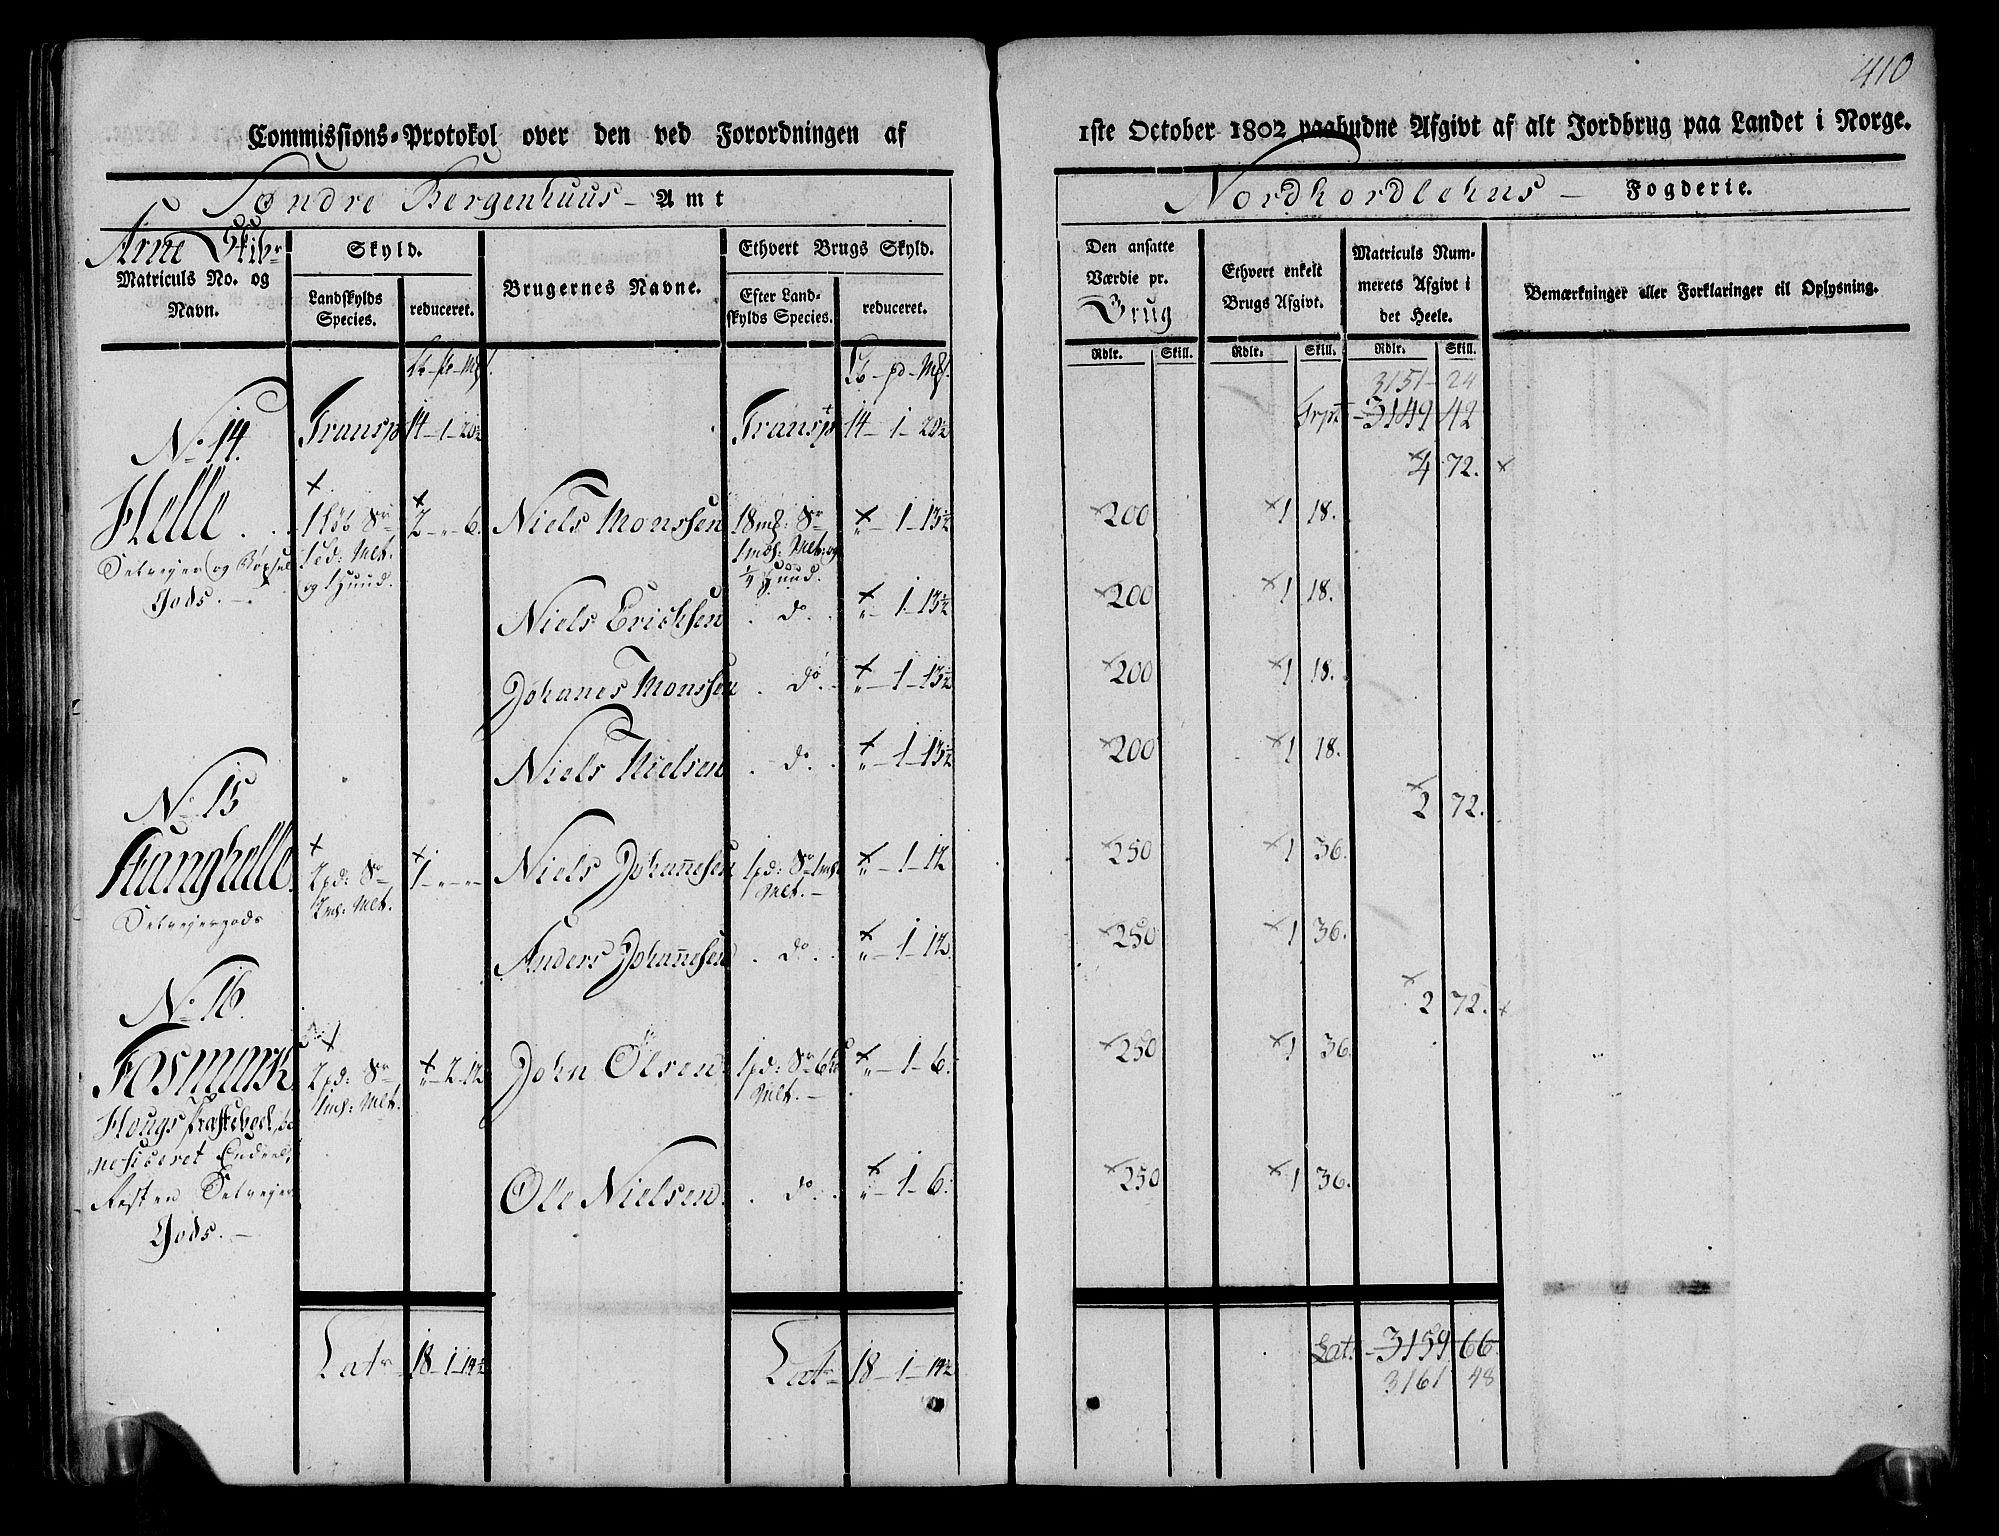 410
Commissions-Protokol over den ved Forordningen af 1ste October 1802 paabudne Afgivt af alt Jordbrug paa Landet i Norge.
Søndre Bergenhuus Amt
Nordhordlehns Fogderie.
Arne Skibr
Matriculs No. og Navn.
Skyld.
Landskylds Species.
reduceret.
Brugernes Navne.
Ethvert Brugs Skyld.
Efter Landskylds Species.
reduceret.
Den ansatte Værdie pr. Brug
Ethvert enkelt Brugs Afgivt.
Matriculs Nummerets Afgivt i det Heele.
Bemærkninger eller Forklaringer til Oplysning.
Rdlr. Skill. Rdlr. Skill. Rdlr. Skill.
3151 - 24
Transp 14 - 1 - 20½ Transpt 14 - 1 - 20½ Trpt 3149 42
No 14.
4 72.
Helle 1 Løb Sr 2 - " - 6. Niels Monssen 18 mk: Sr " - 1 - 13½ 200 1 18.
Selvejer og
Gods.
og 1 Huud.
1/4 Huud.
Niels Erichsen do " - 1 - 13½ 200 1 18.
Johanes Monssen do " - 1 - 13½ 200 1 18.
Niels Nielsen do " - 1 - 13½ 200 1 18.
No 15
2 72.
Stanghelle 2 pd: Sr 1 - " - " Niels Johannesen 1 pd: Sr " - 1 - 12 250 1 36.
Selvejergods
Anders Johannesen do " - 1 - 12. 250 1 36.
No 16.
2 72.
Fosmark 2 pd: Sr " - 2 - 12 John Olsen 1 pd: Sr " - 1 - 6. 250 1 36.
Hougs Præsteboel be
neficeret
Resten Selvejer
Gods.
Ole Nielsen do " - 1 - 6. 250 1 36.
Latr 18 - 1 - 14½ Latr 18 - 1 - 14½ Lat: 3159 66
3161 48